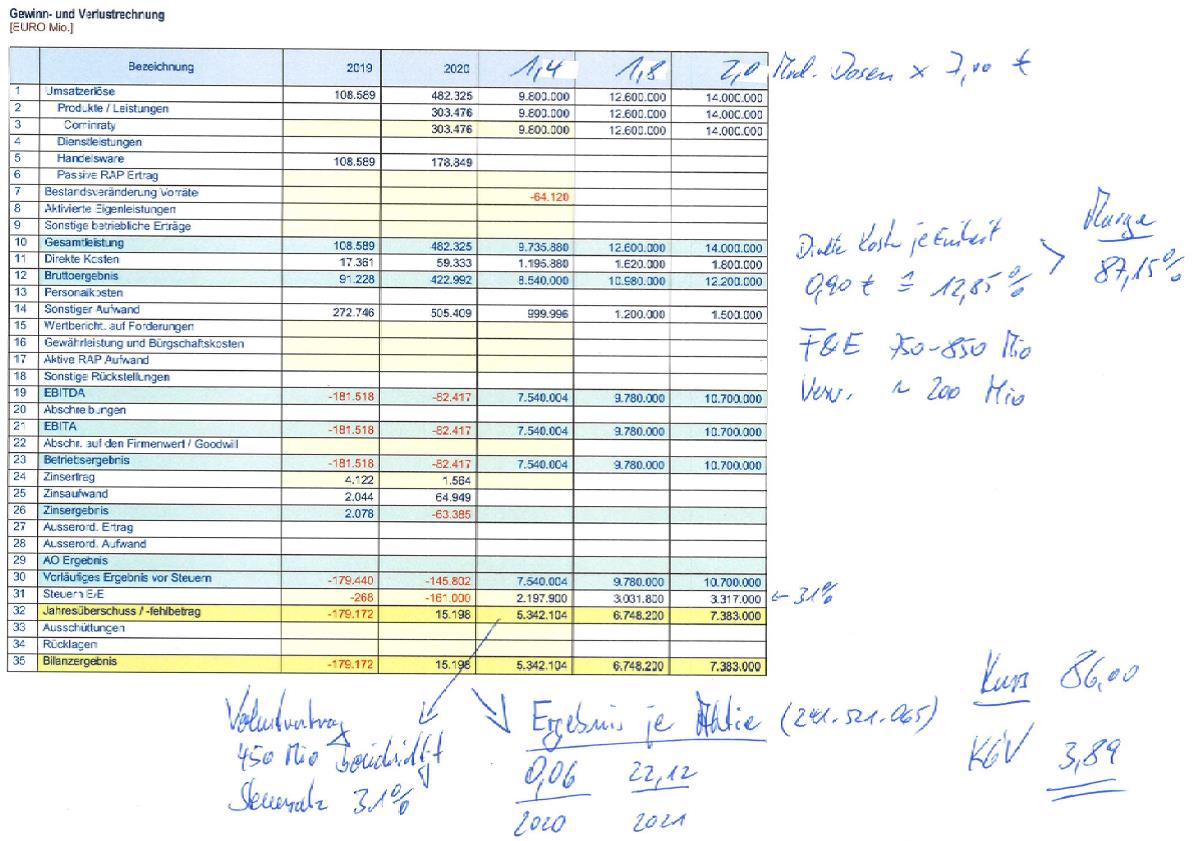 Gewinn- und Verlustrechnung
[EURO Mio.]
Bezeichnung 2019 2020 1,4 1,8 2,0 Mrd. Dosen x 7,00 €
1 Umsatzerlöse 108.589 482.325 9.800.000 12.600.000 14.000.000
2 Produkte / Leistungen 303.476 9.800.000 12.600.000 14.000.000
3 Cominraty 303.476 9.800.000 12.600.000 14.000.000
4 Dienstleistungen
5 Handelsware 108.589 178.849
6 Passive RAP Ertrag
7 Bestandsveränderung Vorräte -64.120
8 Aktivierte Eigenleistungen
9 Sonstige betriebliche Erträge
10 Gesamtleistung 108.589 482.325 9.735.880 12.600.000 14.000.000
11 Direkte Kosten 17.361 59.333 1.195.880 1.620.000 1.800.000
12 Bruttoergebnis 91.228 422.992 8.540.000 10.980.000 12.200.000
13 Personalkosten
14 Sonstiger Aufwand 272.746 505.409 999.996 1.200.000 1.500.000
15 Wertbericht. auf Forderungen
16 Gewährleistung und Bürgschaftskosten
17 Aktive RAP Aufwand
18 Sonstige Rückstellungen
19 EBITDA -181.518 -82.417 7.540.004 9.780.000 10.700.000
20 Abschreibungen
21 EBITA -181.518 -82.417 7.540.004 9.780.000 10.700.000
22 Abschr. auf den Firmenwert / Goodwill
23 Betriebsergebnis -181.518 -82.417 7.540.004 9.780.000 10.700.000
24 Zinsertrag 4.122 1.564
25 Zinsaufwand 2.044 64.949
26 Zinsergebnis 2.078 -63.385
27 Ausserord. Ertrag
28 Ausserord. Aufwand
29 AO Ergebnis
30 Vorläufiges Ergebnis vor Steuern -179.440 -145.802 7.540.004 9.780.000 10.700.000
31 Steuern E/E -268 -161.000 2.197.900 3.031.800 3.317.000 ← 31%
32 Jahresüberschuss / -fehlbetrag -179.172 15.198 5.342.104 6.748.200 7.383.000
33 Ausschüttungen
34 Rücklagen
35 Bilanzergebnis -179.172 15.198 5.342.104 6.748.200 7.383.000
Direkte Kosten je Einheit
0,90 € ≙ 12,85%
Marge
87,15%
F&E 750-850 Mio
Verw. ~ 200 Mio
Verlustvortrag
450 Mio berücksichtigt
Steuersatz 31%
Ergebnis je Aktie (241.521.065)
0,06 22,12
2020 2021
Kurs 86,00
KGV 3,89